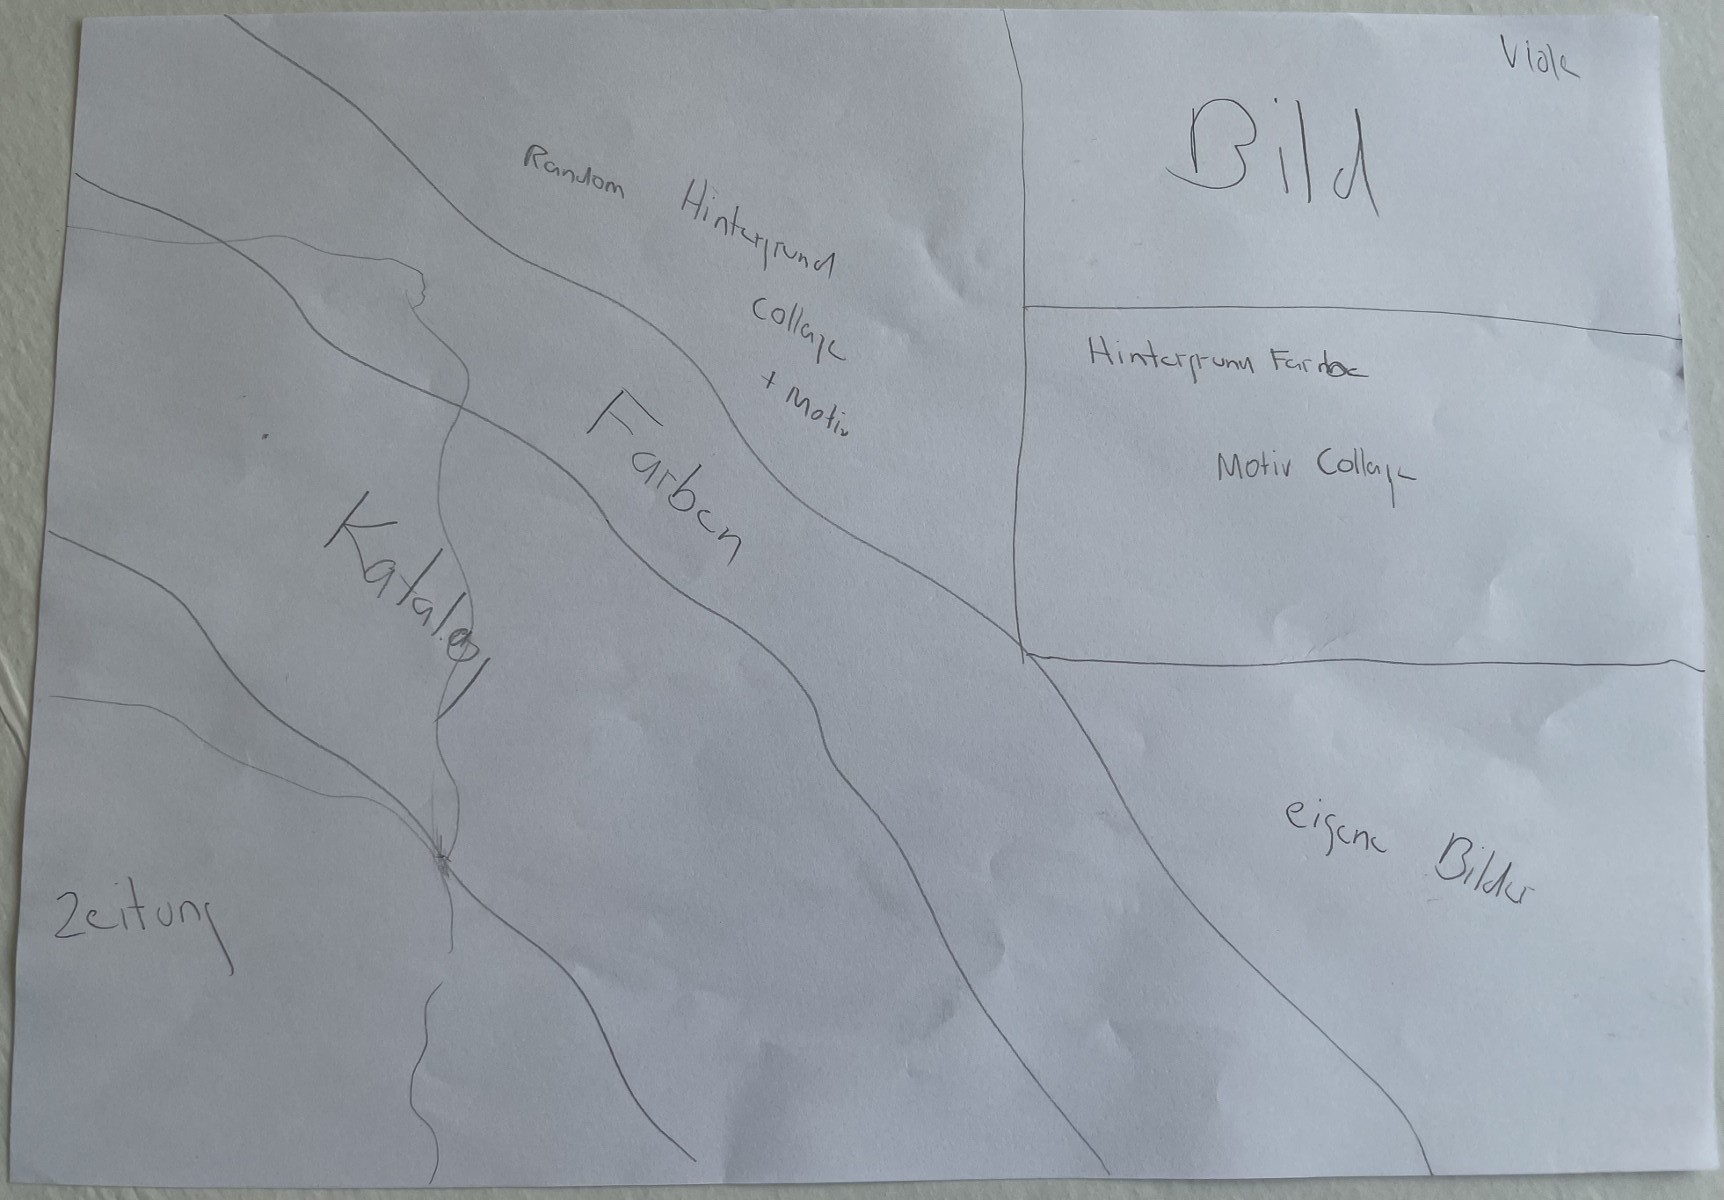 Viole
Bild
Random Hintergrund
Collage
+ Motiv
Hintergrunn Farbe
Motiv Collage
Farben
Katalog
eigene Bilder
Zeitung